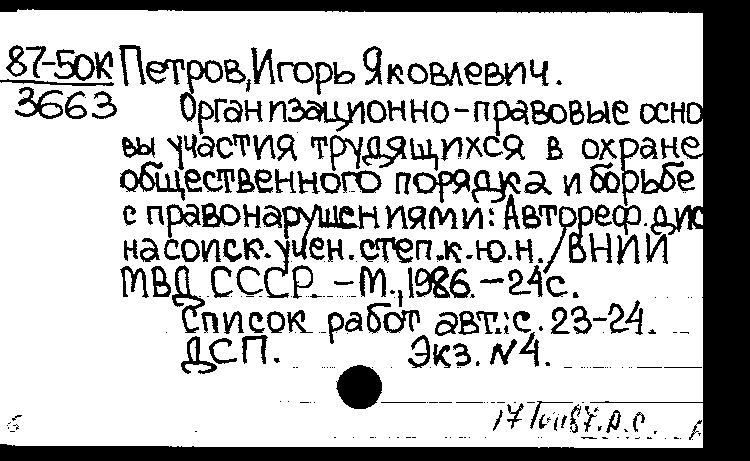 87-50К Петров, Игорь Яковлевич.
3663 Организационно-правовые осно
вы участия трудящихся в охране
общественного порядка и борьбе
с правонарушениями: Автореф. дис
на соиск. учен. степ. к.ю.н. / ВНИИ
МВД СССР. - М., 1986. - 24с.
Список работ авт.: с. 23-24.
ДСП. Экз. N4.